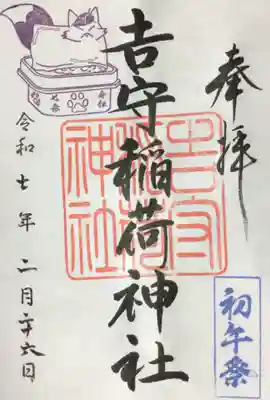 奉拝
吉守稲荷神社
吉守
稲荷
神社
初午祭
令和七年 二月二十六日